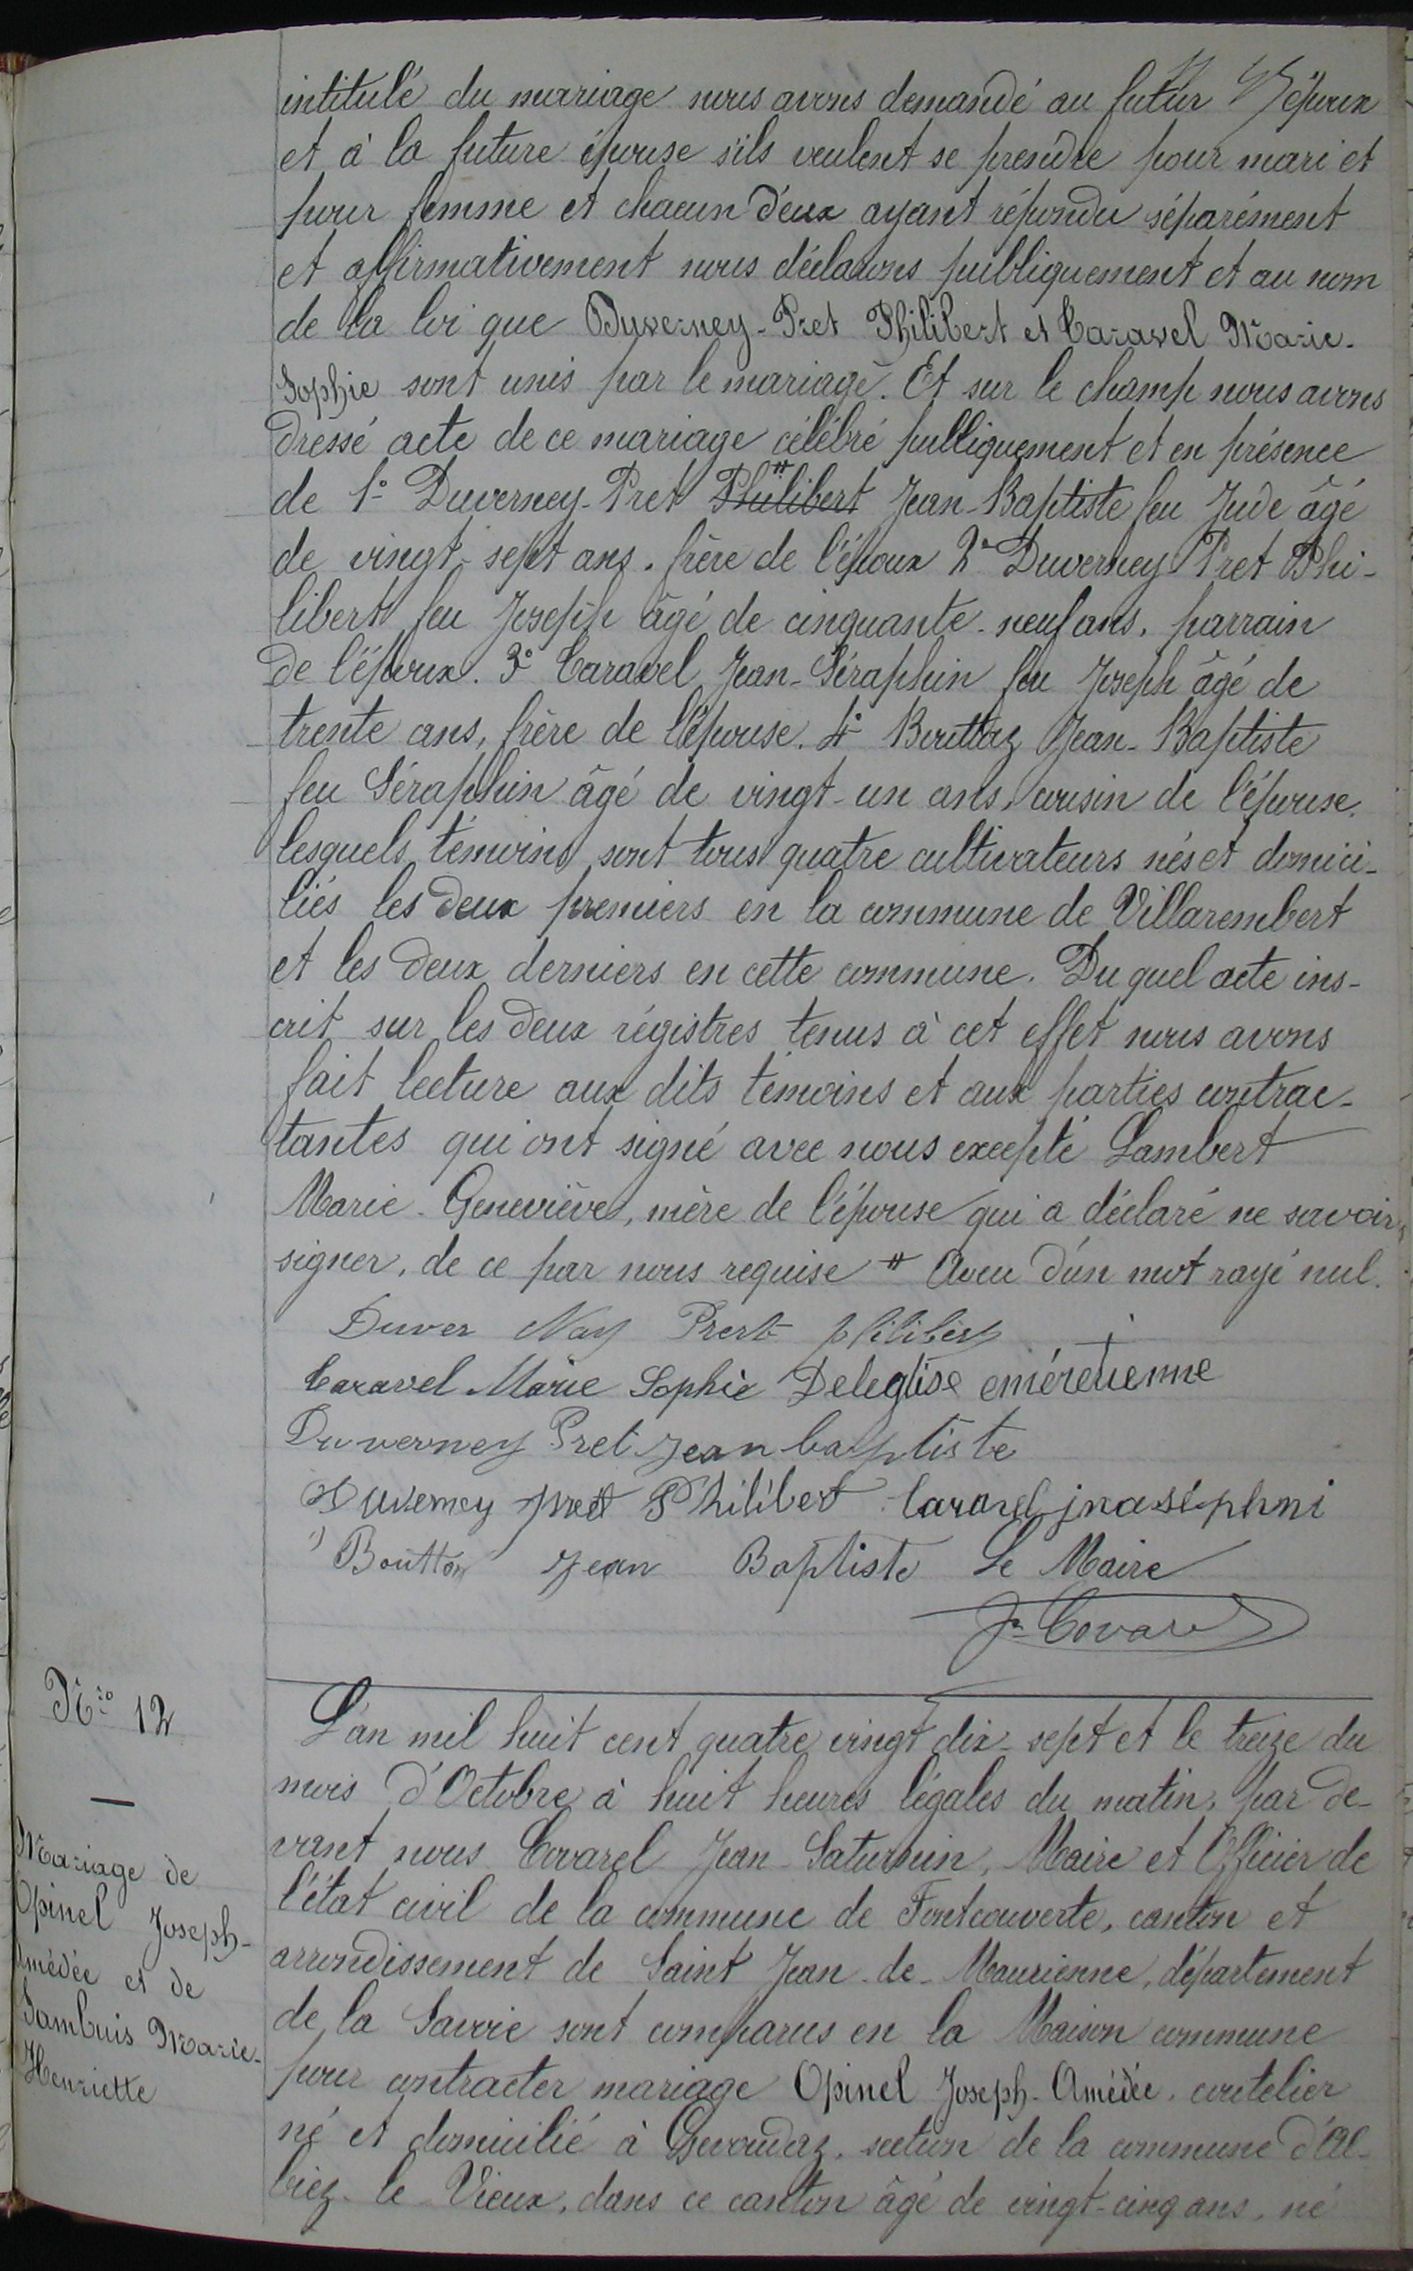 intitulé du mariage nous avons demandé au futur époux
et à la future épouse s'ils veulent se prendre pour mari et
pour femme et chacun d'eux ayant répondu séparément
et affirmativement nous déclarons publiquement et au nom
de la loi que Duverney-Pret Philibert et Caravel Marie-
Sophie sont unis par le mariage. Et sur le champ nous avons
dressé acte de ce mariage célébré publiquement et en présence
de 1° Duverney-Pret Philibert # Jean-Baptiste feu Jude âgé
de vingt-sept ans, frère de l'époux 2° Duverney Pret Phi-
libert feu Joseph âgé de cinquante-neuf ans, parrain
de l'époux. 3° Caravel Jean-Séraphin feu Joseph âgé de
trente ans, frère de l'épouse. 4° Bouttaz Jean-Baptiste
feu Séraphin âgé de vingt-un ans, cousin de l'épouse.
lesquels témoins sont tous quatre cultivateurs nés et domici-
liés les deux premiers en la commune de Villarembert
et les deux derniers en cette commune. Du quel acte ins-
crit sur les deux régistres tenus à cet effet nous avons
fait lecture aux dits témoins et aux parties contrac-
tantes qui ont signé avec nous excepté Lambert
Marie-Geneviève, mère de l'épouse qui a déclaré ne savoir
signer, de ce par nous requise # Aveu d'un mot rayé nul.
Duver Nay Prert philibert
Caravel Marie Sophie Deleglise eméretienne
Duverney Pret Jean baptiste
Duverney pret Philibert Caravel
Bouttaz Jean Baptiste Le Maire
Jn Covarel
N:ro 12
Mariage de
Opinel Joseph-
Amédée et de
Sambuis Marie-
Henriette
L'an mil huit cent quatre vingt dix-sept et le treize du
mois d'Octobre à huit heures légales du matin, par de-
vant nous Covarel Jean-Saturnin, Maire et Officier de
l'état civil de la commune de Fontcouverte, canton et
arrondissement de Saint Jean-de-Maurienne, département
de la Savoie sont comparus en la Maison commune
pour contracter mariage Opinel Joseph-Amédée, coutelier
né et domicilié à Gevoudaz, section de la commune d'Al-
biez-le-Vieux, dans ce canton âgé de vingt-cinq ans, né